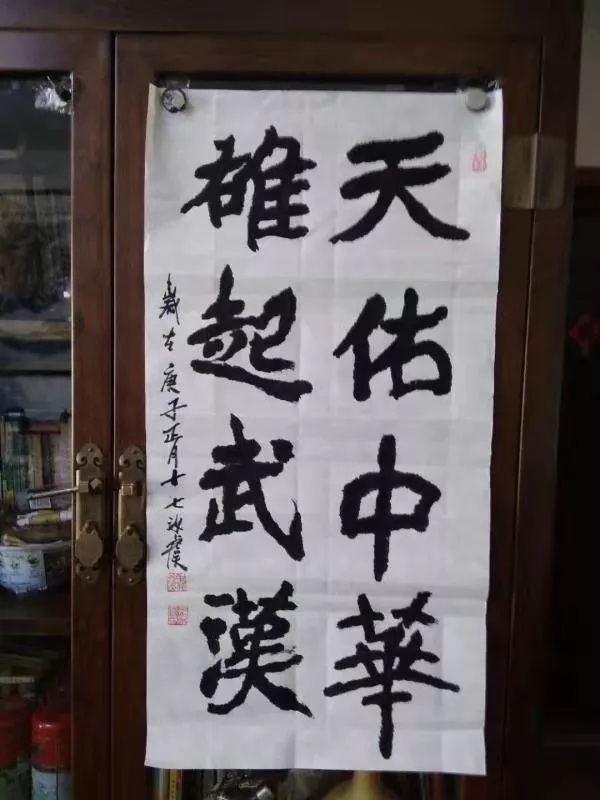 天佑中華
雄起武漢
歲在庚子正月十七